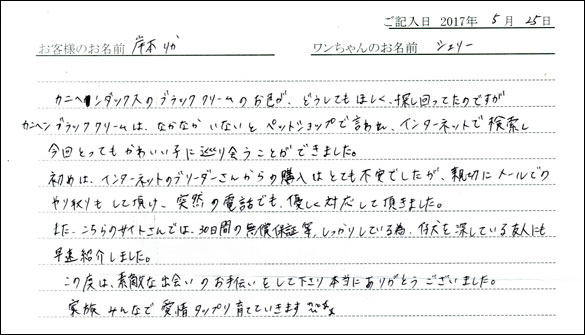 ご記入日 2017年 5月 25日
お客様のお名前 岸本 りか ワンちゃんのお名前 シェリー
カニヘンダックスのブラッククリームのお色が、どうしてもほしく、探し回ってたのですが
カニヘンブラッククリームは、なかなかいないとペットショップで言われ、インターネットで検索し
今回とってもかわいい子に巡り会うことができました。
初めは、インターネットのブリーダーさんからの購入はとても不安でしたが、親切にメールでの
やり取りもして頂け、突然の電話でも、優しく対応して頂きました。
また、こちらのサイトさんでは、30日間の無償保証等、しっかりしている為、仔犬を探している友人にも
早速紹介しました。
この度は、素敵な出会いのお手伝いをして下さり本当にありがとうございました。
家族みんなで愛情タップリ育てていきます